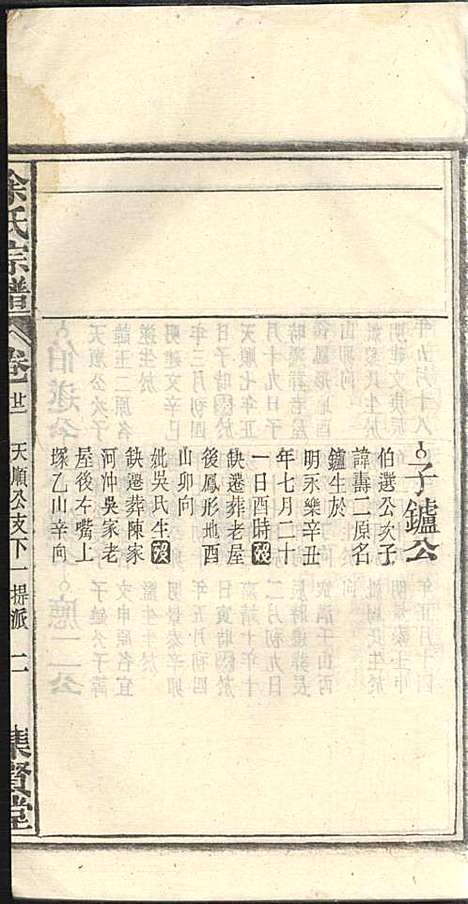 子鑪公
伯選公次子
諱壽二原名
鑪生於
明永樂辛丑
年七月二十
一日酉時歿
缺遷葬老屋
後鳳形地酉
山卯向
妣吳氏生歿
缺遷葬陳家
河沖吳家老
屋後左嘴上
塚乙山辛向
余氏宗譜
卷廿
天順公支下一提派
二
集賢堂